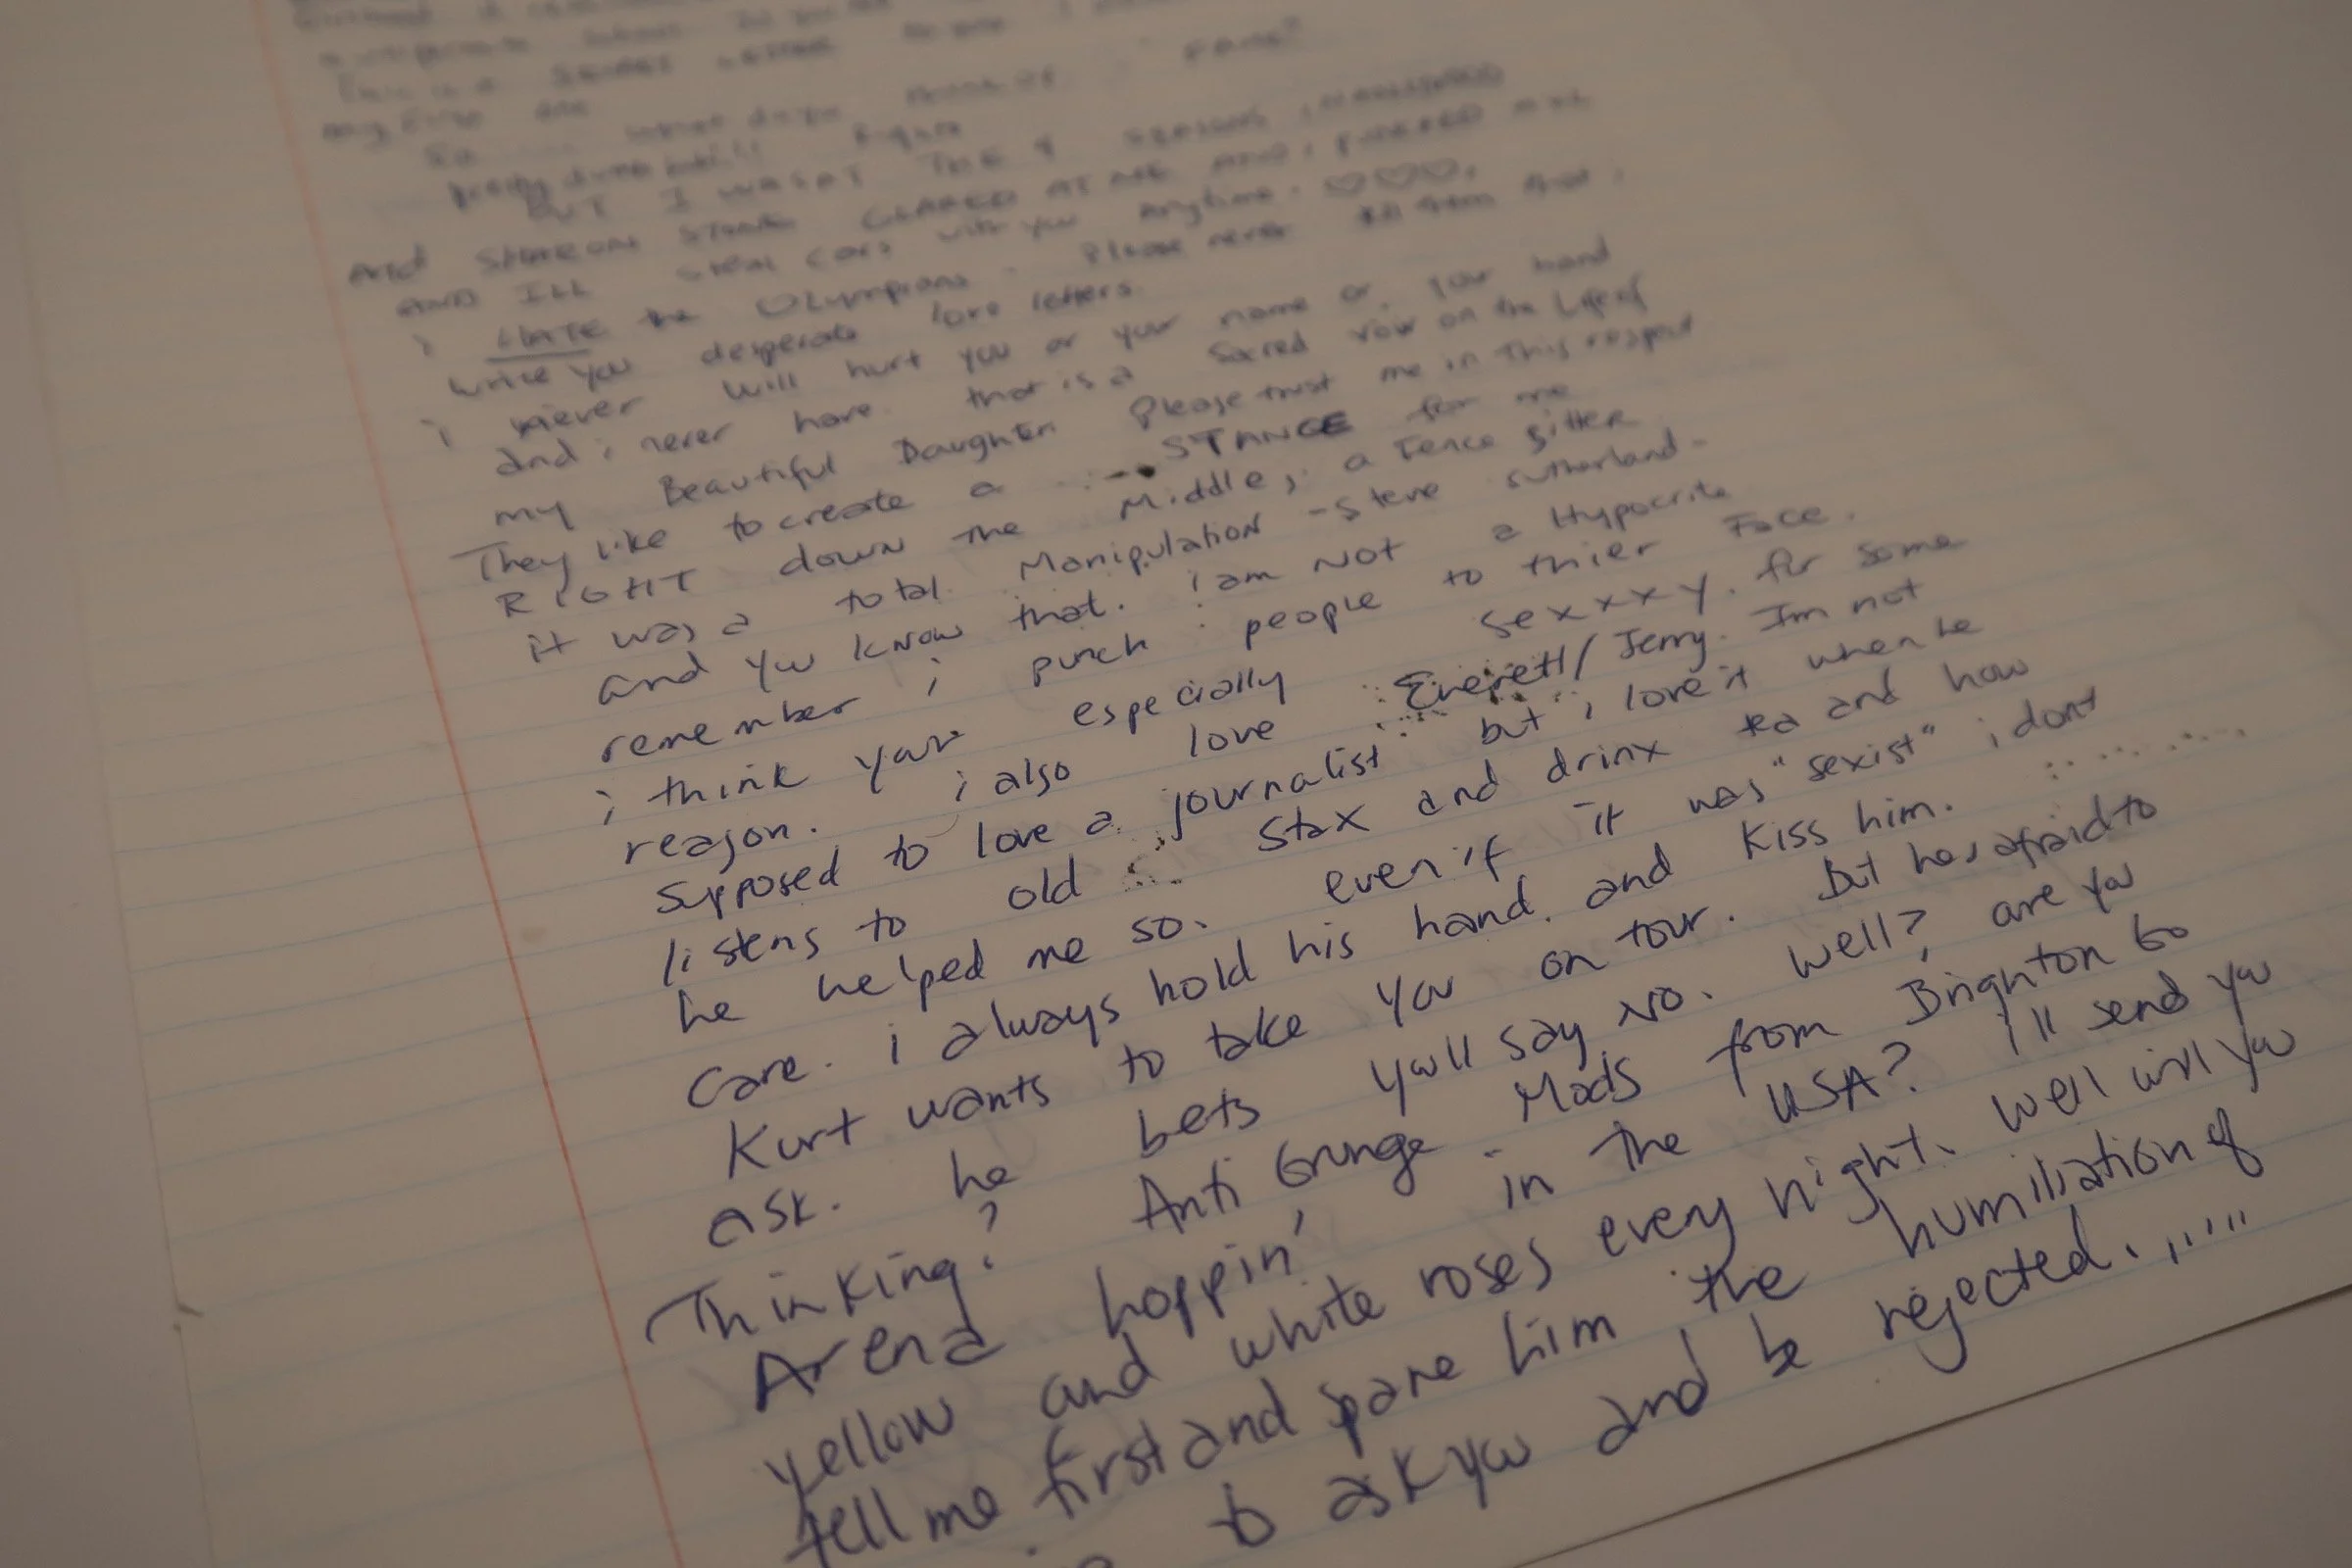 This is a SECRET LETTER
my first one
So
BUT I WASN'T THE
AND SHARON STONE GLARED AT ME AND i
AND ILL steal cars with you anytime. ♡♡♡.
i HATE the Olympians. Please never
write you desperate love letters
i never will hurt you or your name or your band
and i never have. that is a sacred vow on the Life of
my Beautiful Daughter. Please trust me in this respect
They like to create a STANCE for me
RIGHT down the Middle, a Fence sitter
it was a total Manipulation - Steve Sutherland -
and you know that. i am NOT a Hypocrite
remember i punch people to thier Face.
i think your especially sexxxy. for some
reason. i also love Everett/Jerry. Im not
supposed to love a journalist but i love it when he
listens to old Stax and drinx tea and how
he helped me so. even if it was "sexist" i dont
care. i always hold his hand. and Kiss him.
Kurt wants to take you on tour. But hes afraid to
ask. he bets you'll say no. well? are you
Thinking? Anti Grunge Mods from Brighton Go
Arena hoppin' in the USA? i'll send you
yellow and white roses every night. well will you
tell me first and spare him the humiliation of
to ask you and be rejected.